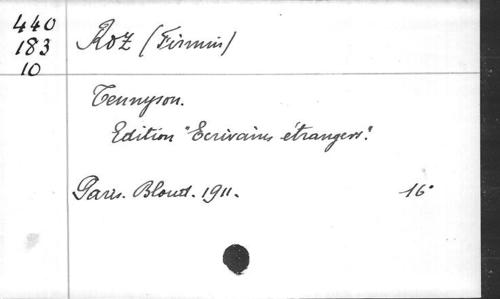 440
183
10
Roz (Firmin)
Tennyson.
Edition "Ecrivains étrangers".
Paris. Bloud. 1911. 16°